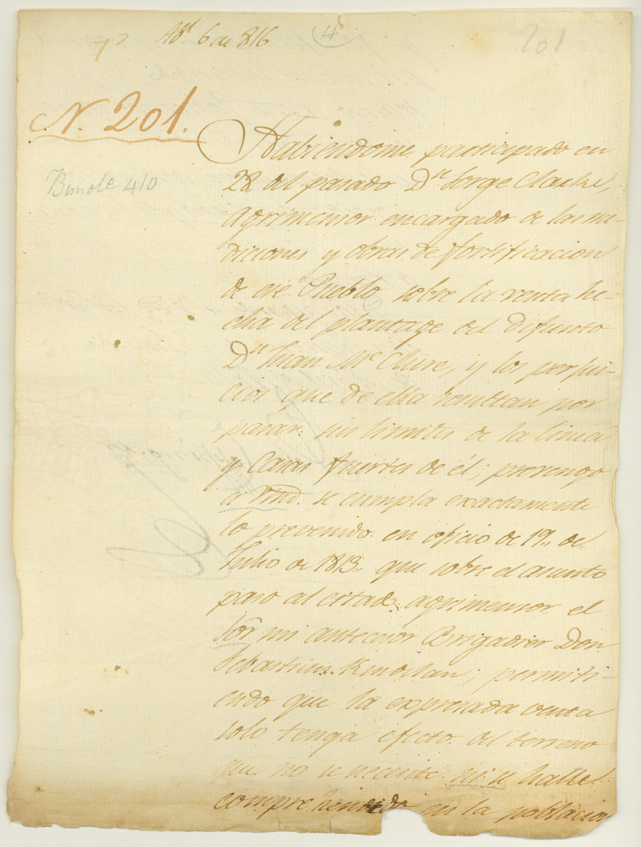 6 de 816
4
201
N. 201.
Bundle 410
Habiendome participado en
28 del pasado Dn. Jorge Clarke,
Agrimensor encargado de las me-
diciones y obras de fortificacion
de ese Pueblo sobre la venta he-
cha del plantage del difunto
Dn. Juan Mc. Clure, y los perjui-
cios que de ella resultan por
pasar sus limites de la linea
y Casas fuertes de él; prevengo
a Vmd. se cumpla exactamente
lo prevenido en oficio de 19. de
Julio de 1813. que sobre el asunto
paso al citado agrimensor el
Sor. mi antecesor Brigadier Don
Sebastian Kindelan; permiti-
endo que la expresada venta
solo tenga efecto del terreno
que no se necesite ni se halle
comprehendido en la poblacion